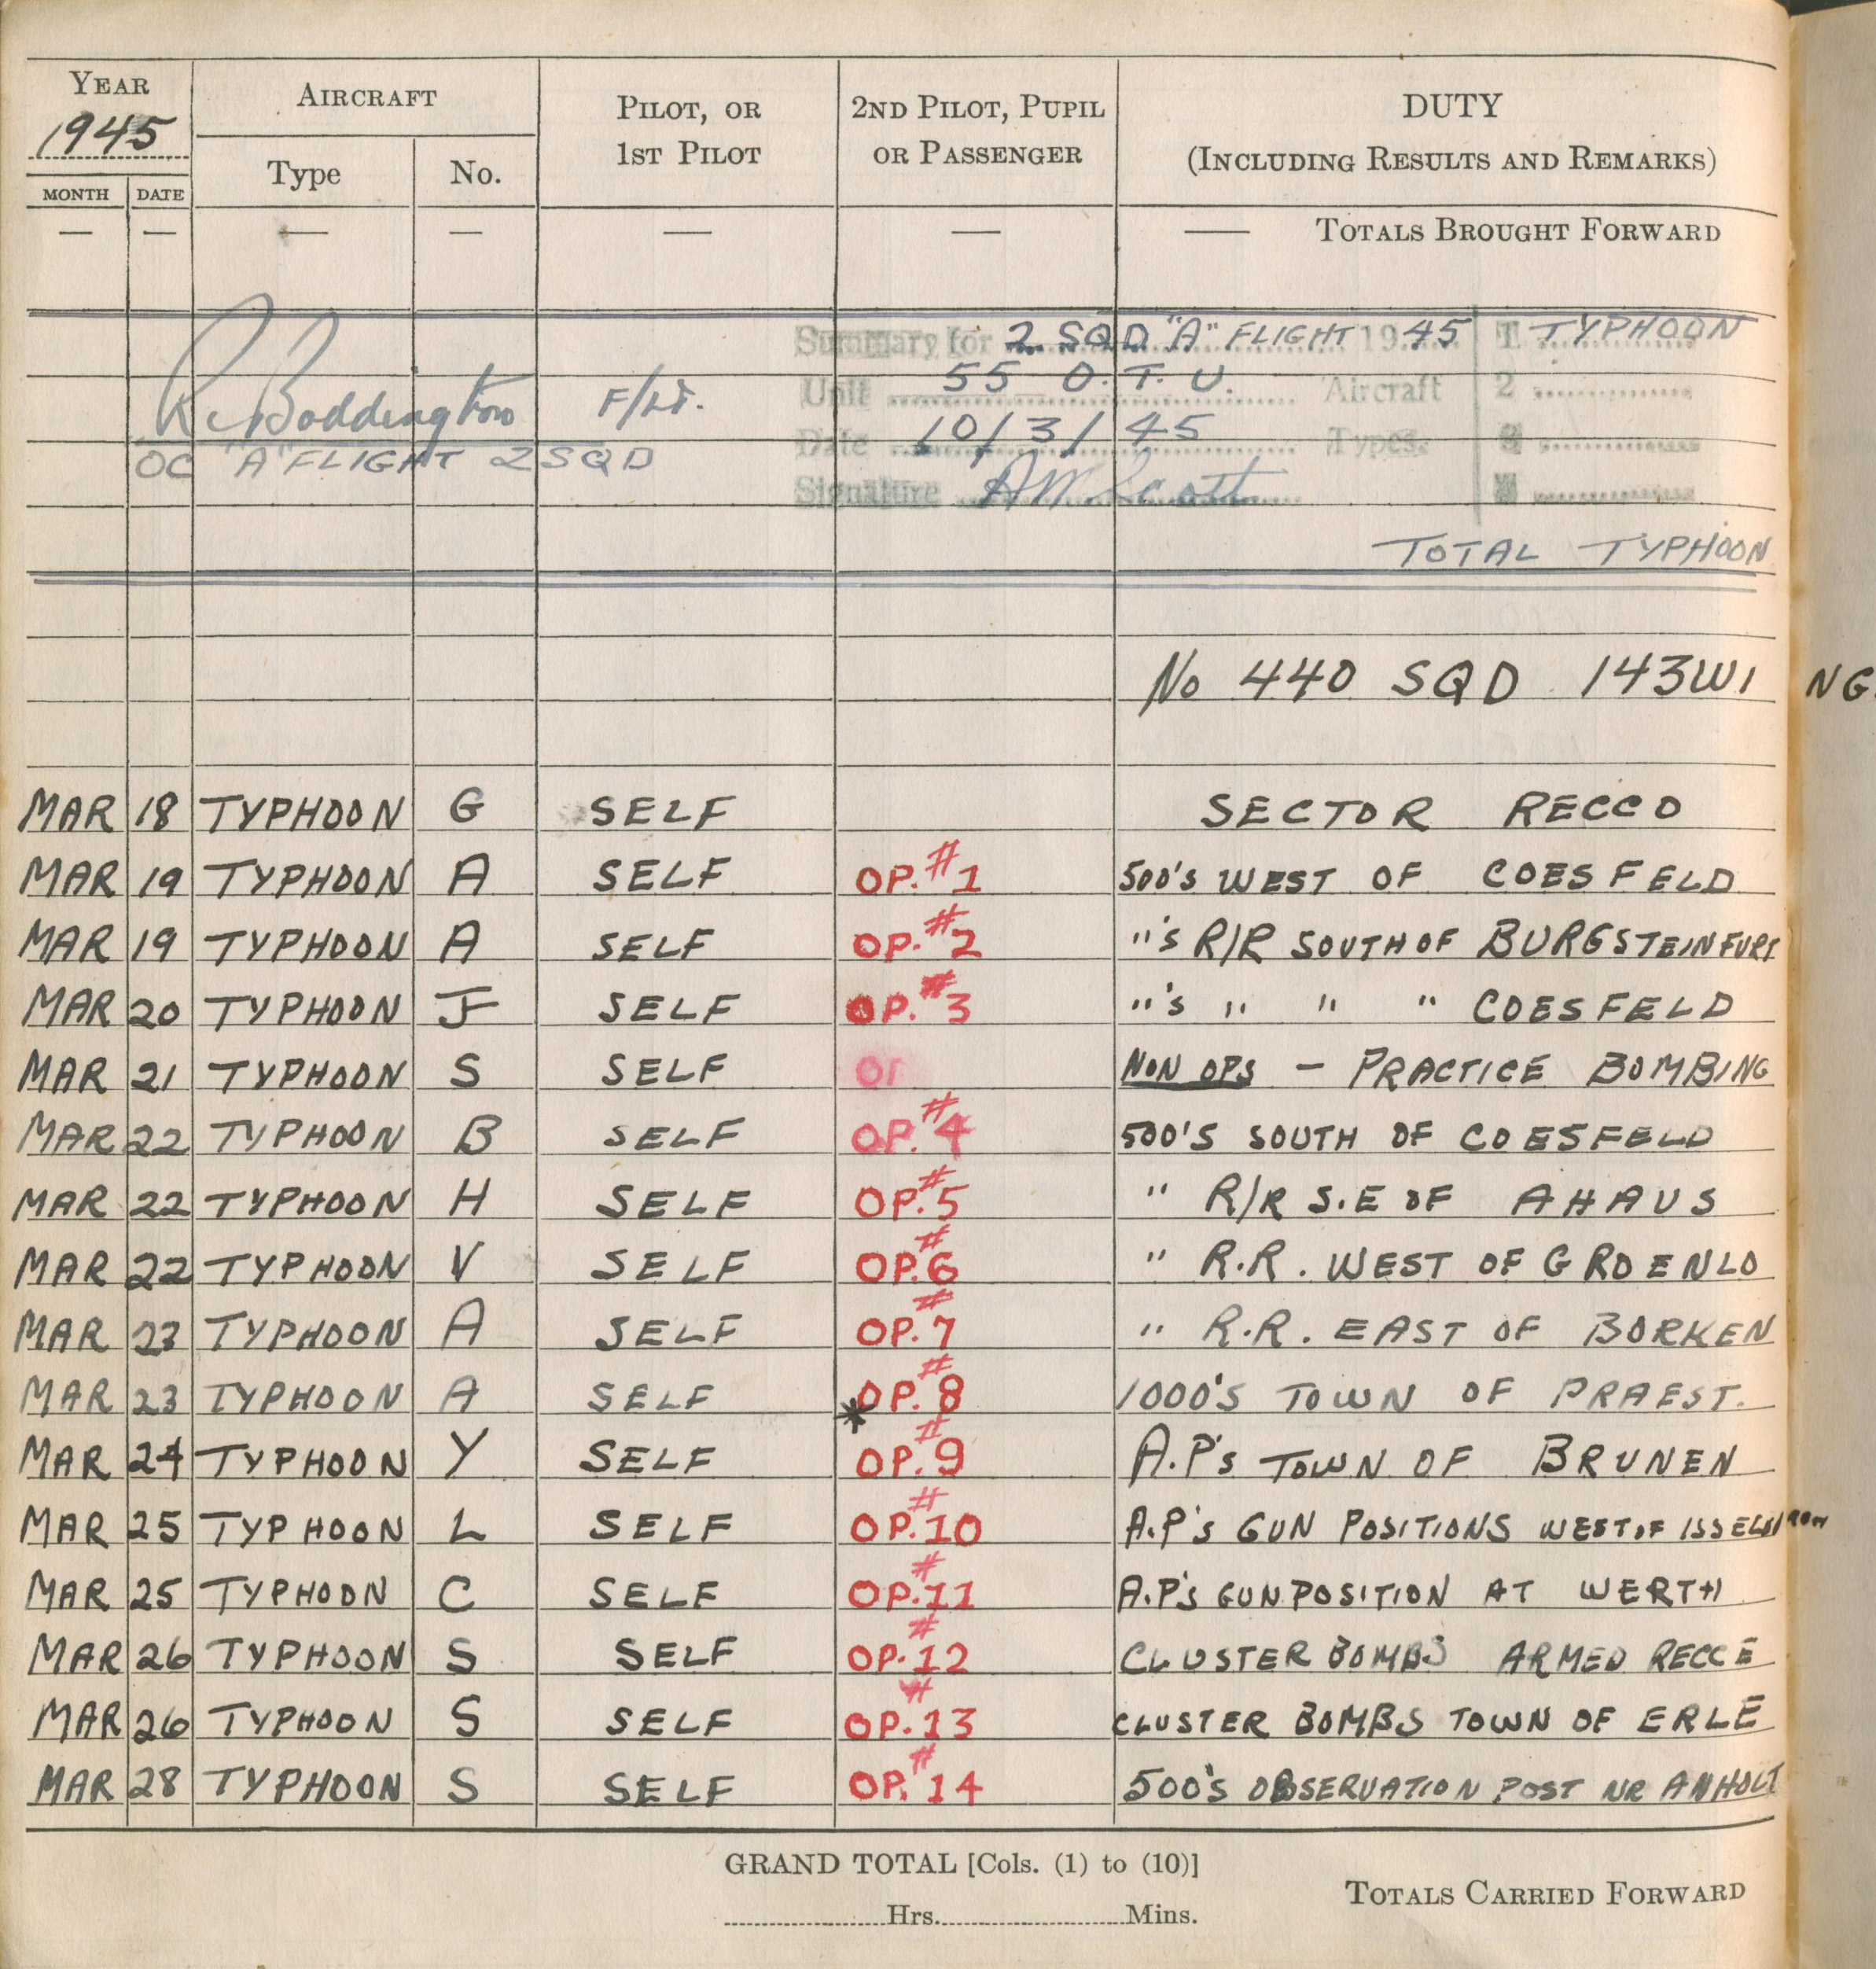 YEAR
1945
AIRCRAFT
PILOT, OR
1ST PILOT
2ND PILOT, PUPIL
OR PASSENGER
DUTY
(INCLUDING RESULTS AND REMARKS)
MONTH DATE Type No.
— — — — — — — TOTALS BROUGHT FORWARD
Summary for 2 SQD "A" FLIGHT 1945 1 TYPHOON
Unit 55 O.T.U. Aircraft 2
R. Boddington F/Lt.
Date 10/3/45 Types.
OC "A" FLIGHT 2 SQD
Signature AM Scott
TOTAL TYPHOON
No 440 SQD 143 WING
MAR 18 TYPHOON G SELF SECTOR RECCO
MAR 19 TYPHOON A SELF OP. #1 500's WEST OF COESFELD
MAR 19 TYPHOON A SELF OP. #2 "'s R/R SOUTH OF BURGSTEINFURT
MAR 20 TYPHOON J SELF OP. #3 "'s " " " COESFELD
MAR 21 TYPHOON S SELF NON OPS — PRACTICE BOMBING
MAR 22 TYPHOON B SELF OP. #4 500'S SOUTH OF COESFELD
MAR 22 TYPHOON H SELF OP. #5 " R/R S.E OF AHAUS
MAR 22 TYPHOON V SELF OP. #6 " R.R. WEST OF GROENLO
MAR 23 TYPHOON A SELF OP. #7 " R.R. EAST OF BORKEN
MAR 23 TYPHOON A SELF OP. #8 1000'S TOWN OF PRAEST.
MAR 24 TYPHOON Y SELF *OP. #9 A.P's TOWN OF BRUNEN
MAR 25 TYPHOON L SELF OP. #10 A.P's GUN POSITIONS WEST OF
MAR 25 TYPHOON C SELF OP. #11 A.P's GUN POSITION AT WERTH
MAR 26 TYPHOON S SELF OP. #12 CLUSTER BOMBS ARMED RECCE
MAR 26 TYPHOON S SELF OP. #13 CLUSTER BOMBS TOWN OF ERLE
MAR 28 TYPHOON S SELF OP. #14 500's OBSERVATION POST NR ANHOLT
GRAND TOTAL [Cols. (1) to (10)]
Hrs. Mins.
TOTALS CARRIED FORWARD